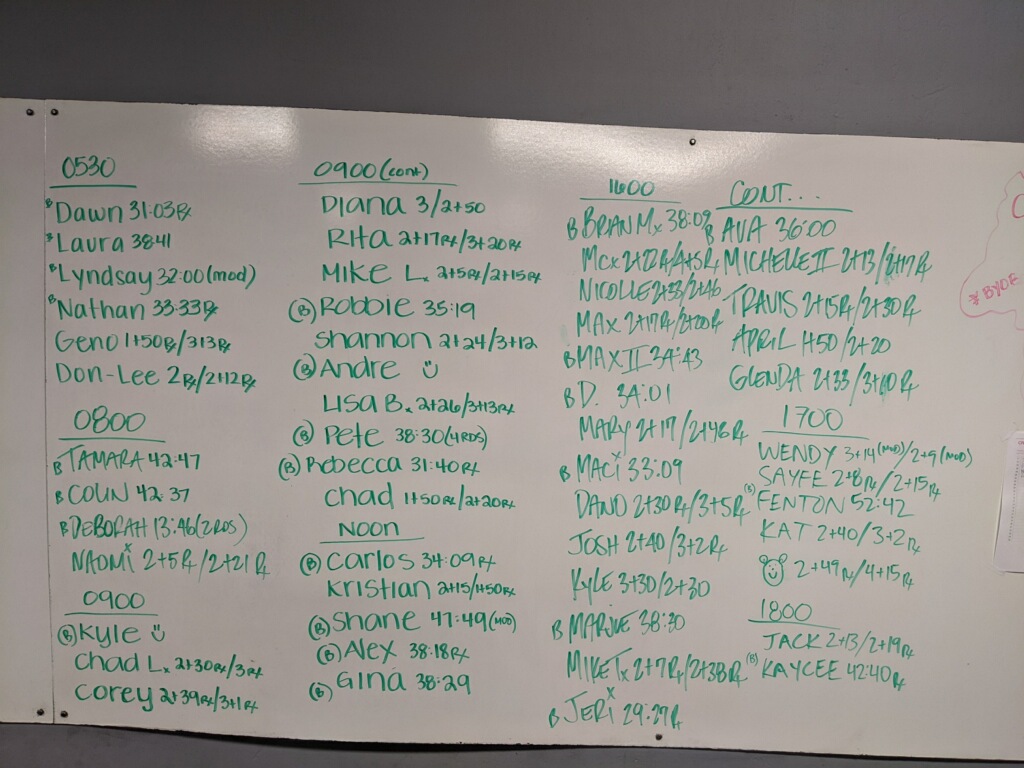 0530
B Dawn 31:03 Rx
B Laura 38:41
B Lyndsay 32:00 (mod)
B Nathan 33:33 Rx
Geno 1+50 Rx/3 13 Rx
Don-Lee 2 Rx/2+12 Rx
0800
B TAMARA 42:47
B COLIN 42:37
B DEBORAH 13:46 (2 RDS)
NAOMI 2+5 Rx/2+21 Rx
0900
(B) Kyle
Chad L. 2+30 Rx/3 Rx
Corey 2+39 Rx/3+1 Rx
0900 (cont)
Diana 3/2+50
Rita 2+17 Rx/3+20 Rx
Mike L. 2+5 Rx/2+15 Rx
(B) Robbie 35:19
Shannon 2+24/3+12
(B) Andre
Lisa B. 2+26/3+13 Rx
(B) Pete 38:30 (4 RDS)
(B) Rebecca 31:40 Rx
Chad 1+50 Rx/2+20 Rx
NOON
(B) Carlos 34:09 Rx
Kristian 2+15/1+50 Rx
(B) Shane 47:49 (MOD)
(B) Alex 38:18 Rx
(B) Gina 38:29
1600
B BRIAN Mx 38:09
NICOLLE 2+33/2+46
MAX 2+17 Rx/2+20 Rx
B MAX II 34:43
B D. 34:01
MARY 2+17/2+46 Rx
B MACI 33:09
DANO 2+30 Rx/3+5 Rx
JOSH 2+40/3+2 Rx
KYLE 3+30/2+30
B 38:30
MIKE Tx 2+7 Rx/2+38 Rx
B JERI 29:29 Rx
CONT...
B AVA 36:00
MICHELLE II 2+13
TRAVIS 2+15 Rx/2+30 Rx
APRIL 1+50/2+20
GLENDA 2+33
1700
WENDY 3+14 (MOD)/2+9 (MOD)
SAYFE 2+8 Rx/2+15 Rx
(B) FENTON 52:42
KAT 2+40/3+2 Rx
2+49 Rx/4+15 Rx
1800
JACK 2+13/2+19 Rx
(B) KAYCEE 42:40 Rx